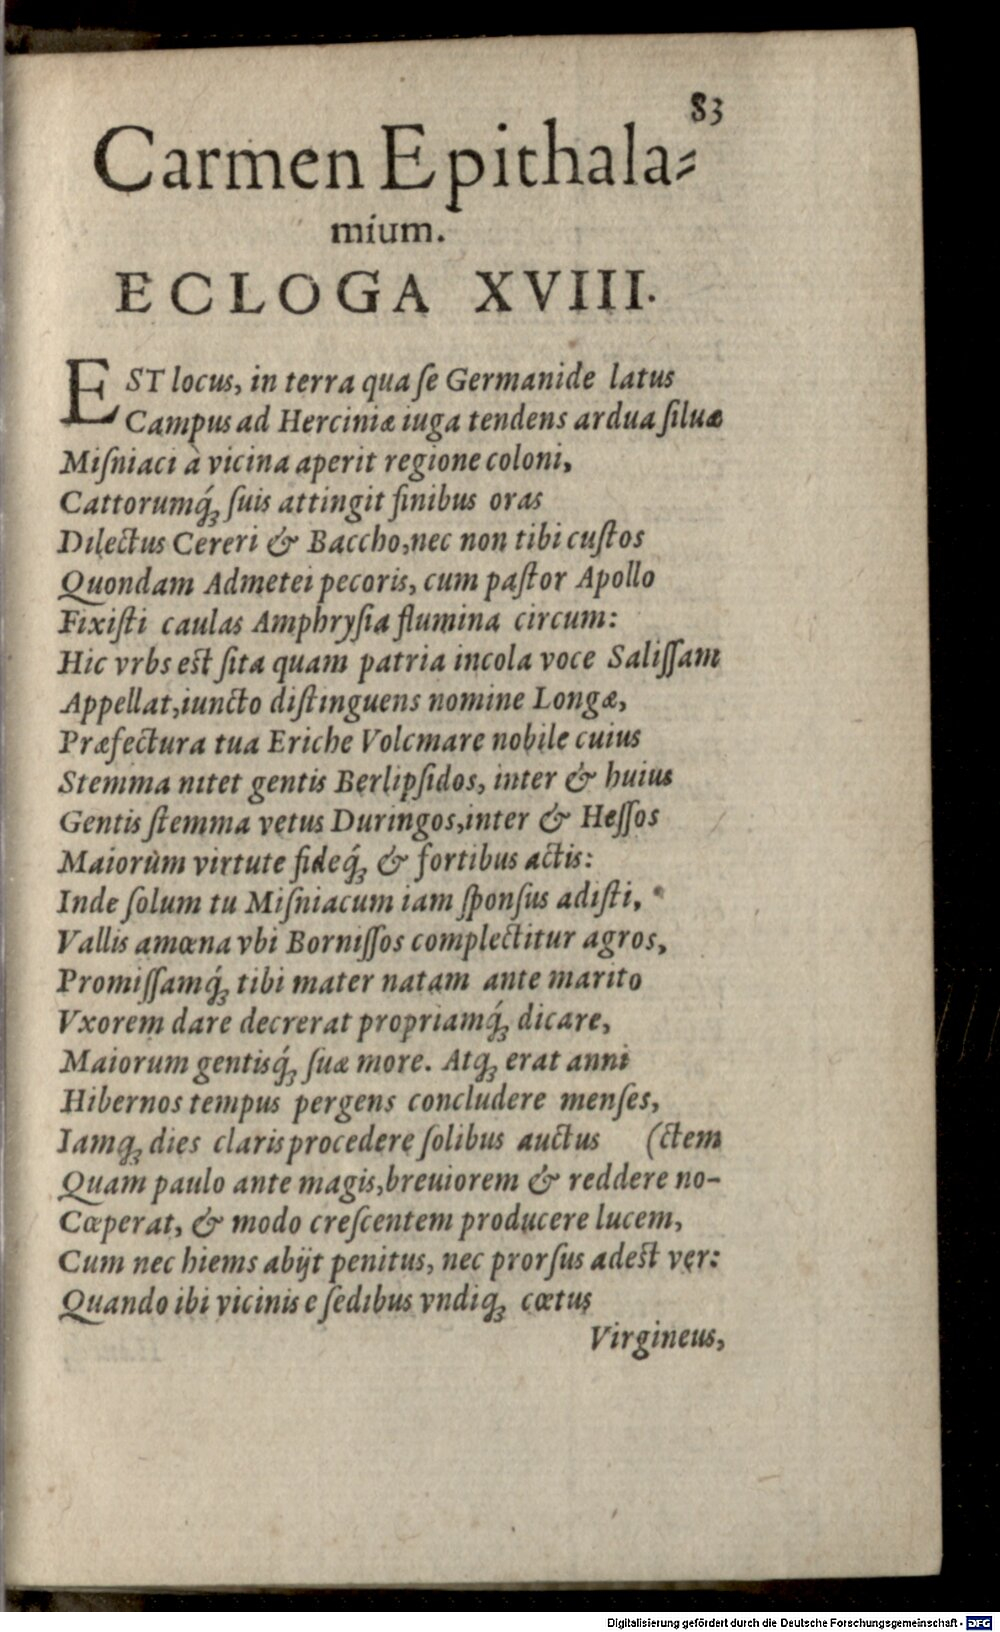 83
Carmen Epithala⸗
mium.
ECLOGA XVIII.
EST locus, in terra qua ſe Germanide latus
Campus ad Herciniæ iuga tendens ardua ſiluæ
Miſniaci à vicina aperit regione coloni,
Cattorumq́ꝫ ſuis attingit finibus oras
Dilectus Cereri & Baccho,nec non tibi cuſtos
Quondam Admetei pecoris, cum paſtor Apollo
Fixiſti caulas Amphryſia flumina circum:
Hic vrbs est ſita quam patria incola voce Saliſſam
Appellat,iuncto diſtinguens nomine Longæ,
Præfectura tua Eriche Volcmare nobile cuius
Stemma nitet gentis Berlipſidos, inter & huius
Gentis ſtemma vetus Duringos,inter & Heſſos
Maiorùm virtute fideq́ꝫ & fortibus actis:
Inde ſolum tu Miſniacum iam ſponſus adiſti,
Vallis amœna vbi Borniſſos complectitur agros,
Promiſſamq́ꝫ tibi mater natam ante marito
Vxorem dare decrerat propriamq́ꝫ dicare,
Maiorum gentisq́ꝫ ſuæ more. Atqꝫ erat anni
Hibernos tempus pergens concludere menſes,
Iamqꝫ dies claris procedere ſolibus auctus (ctem
Quam paulo ante magis,breuiorem & reddere no-
Cœperat, & modo creſcentem producere lucem,
Cum nec hiems abijt penitus, nec prorſus adest ver:
Quando ibi vicinis e ſedibus vndiqꝫ cœtus
Virgineus,
Digitalisierung gefördert durch die Deutsche Forschungsgemeinschaft - DFG